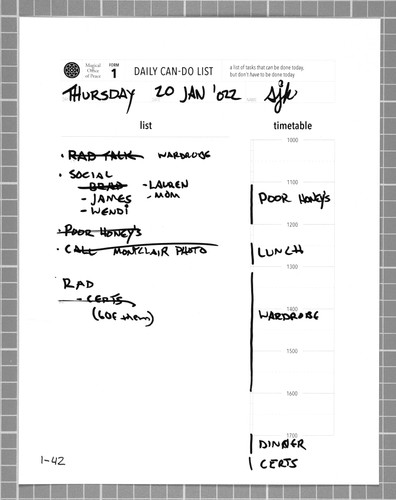 Magical
Office
of Peace
FORM
1
DAILY CAN-DO LIST
a list of tasks that can be done today,
but don't have to be done today
THURSDAY 20 JAN '022 sjk
list
timetable
· RAD TALK WARDROBE
· SOCIAL
- BRAD - LAUREN
- JAMES - MOM
- WENDI
· POOR HONEY'S
· CALL MONTCLAIR PHOTO
RAD
- CERTS
(6 OF them)
1000
1100
POOR HONEY'S
1200
LUNCH
1300
1400
WARDROBE
1500
1600
1700
DINNER
CERTS
1-42